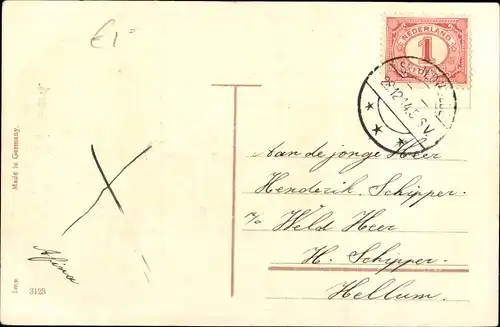 €1-
NEDERLAND
1
CENT
28.12.14.5-6V.
Aan de jonge Heer
Henderik Schipper.
p/a Weld Heer
H. Schipper.
Hellum.
Afina
Made in Germany.
Imp. 3123